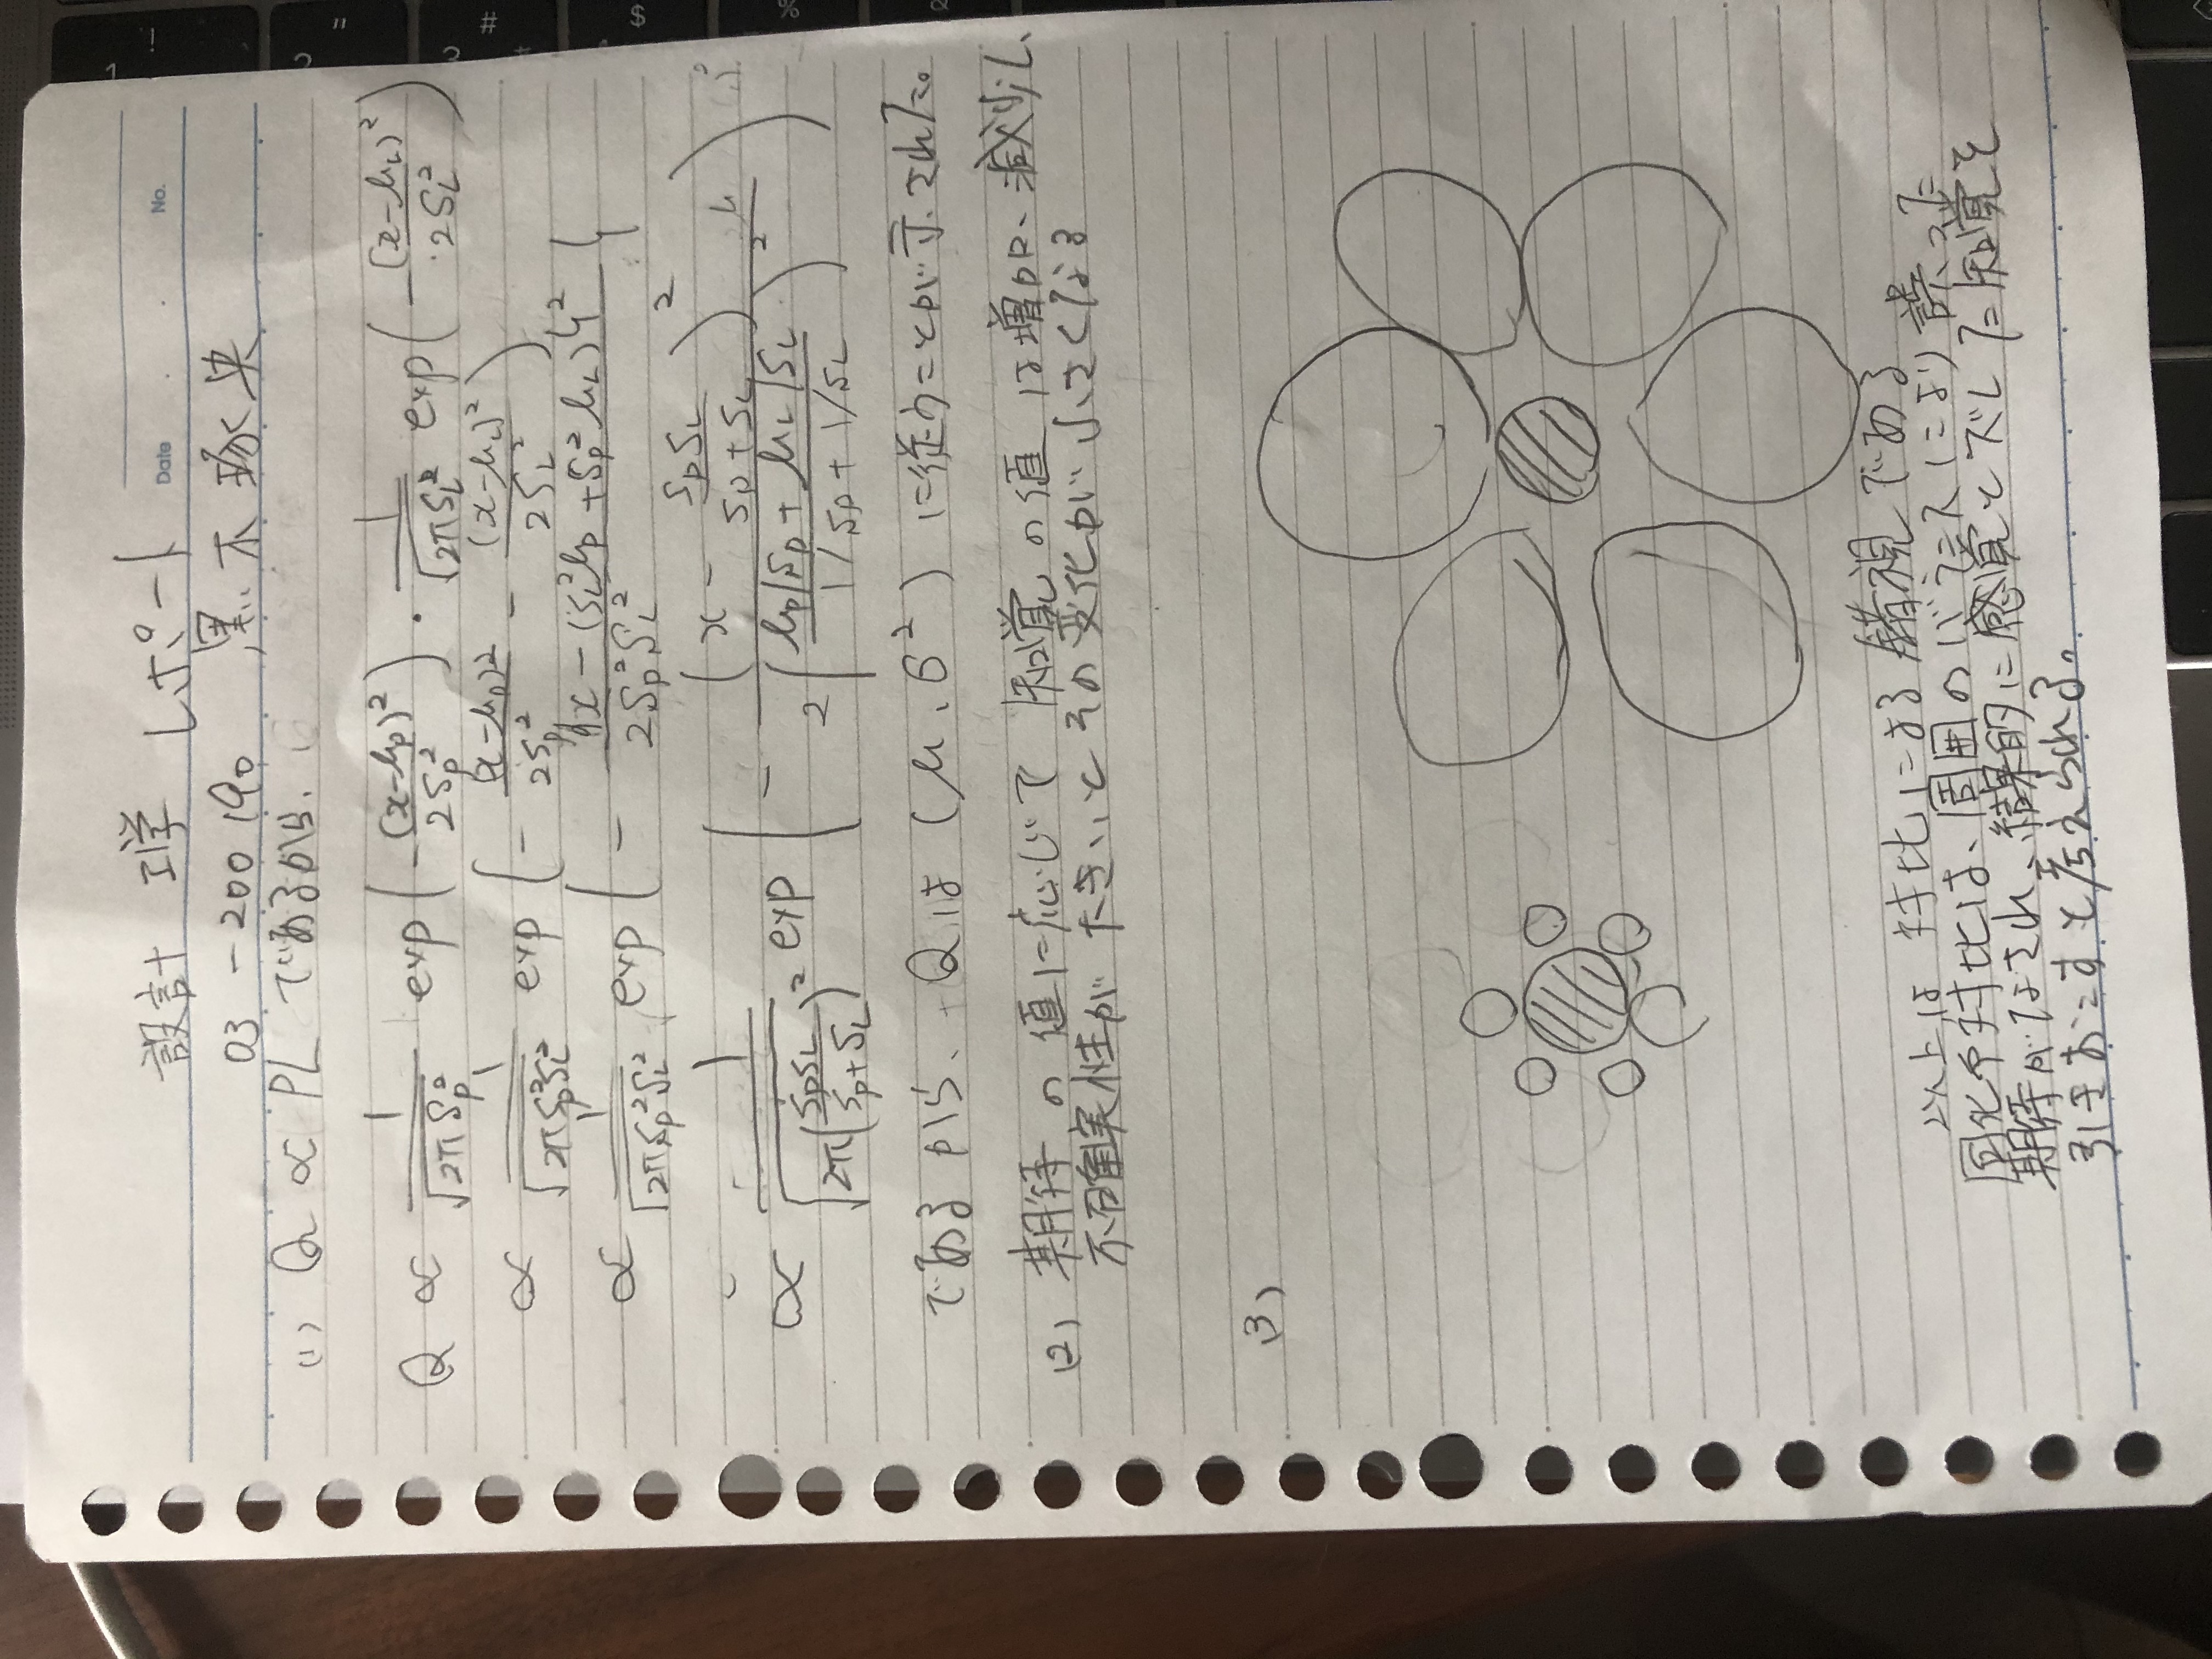 設計工学 レポート
Date . . No.
03-200190 黒木琢央
(1) Q ∝ PL であるから、
Q ∝ 1/√(2πS_P^2) exp(-(x-μ_P)^2/2S_P^2) · 1/√(2πS_L^2) exp(-(x-μ_L)^2/2S_L^2)
∝ 1/√(2πS_P^2S_L^2) exp(-(x-μ_P)^2/2S_P^2 - (x-μ_L)^2/2S_L^2)
∝ 1/√(2πS_P^2S_L^2) exp(-{x-(S_L^2μ_P+S_P^2μ_L)}^2/2S_P^2S_L^2)
∝ 1/√(2π(S_PS_L/(S_P+S_L))^2) exp(-(x-S_PS_L/(S_P+S_L))^2/2((μ_P/S_P+μ_L/S_L)/(1/S_P+1/S_L))^2)
であるから、Qは(μ、σ^2)に従うことが示された。
(2) 期待の値に応じて知覚の値は増加、減少し、
不確実性が大きいとその変化が小さくなる
(3)
以上は対比による錯視である
同化や対比は、周囲のバランスにより誤った
期待がなされ、結果的に感覚とズレした知覚を
引きおこすと考えられる。